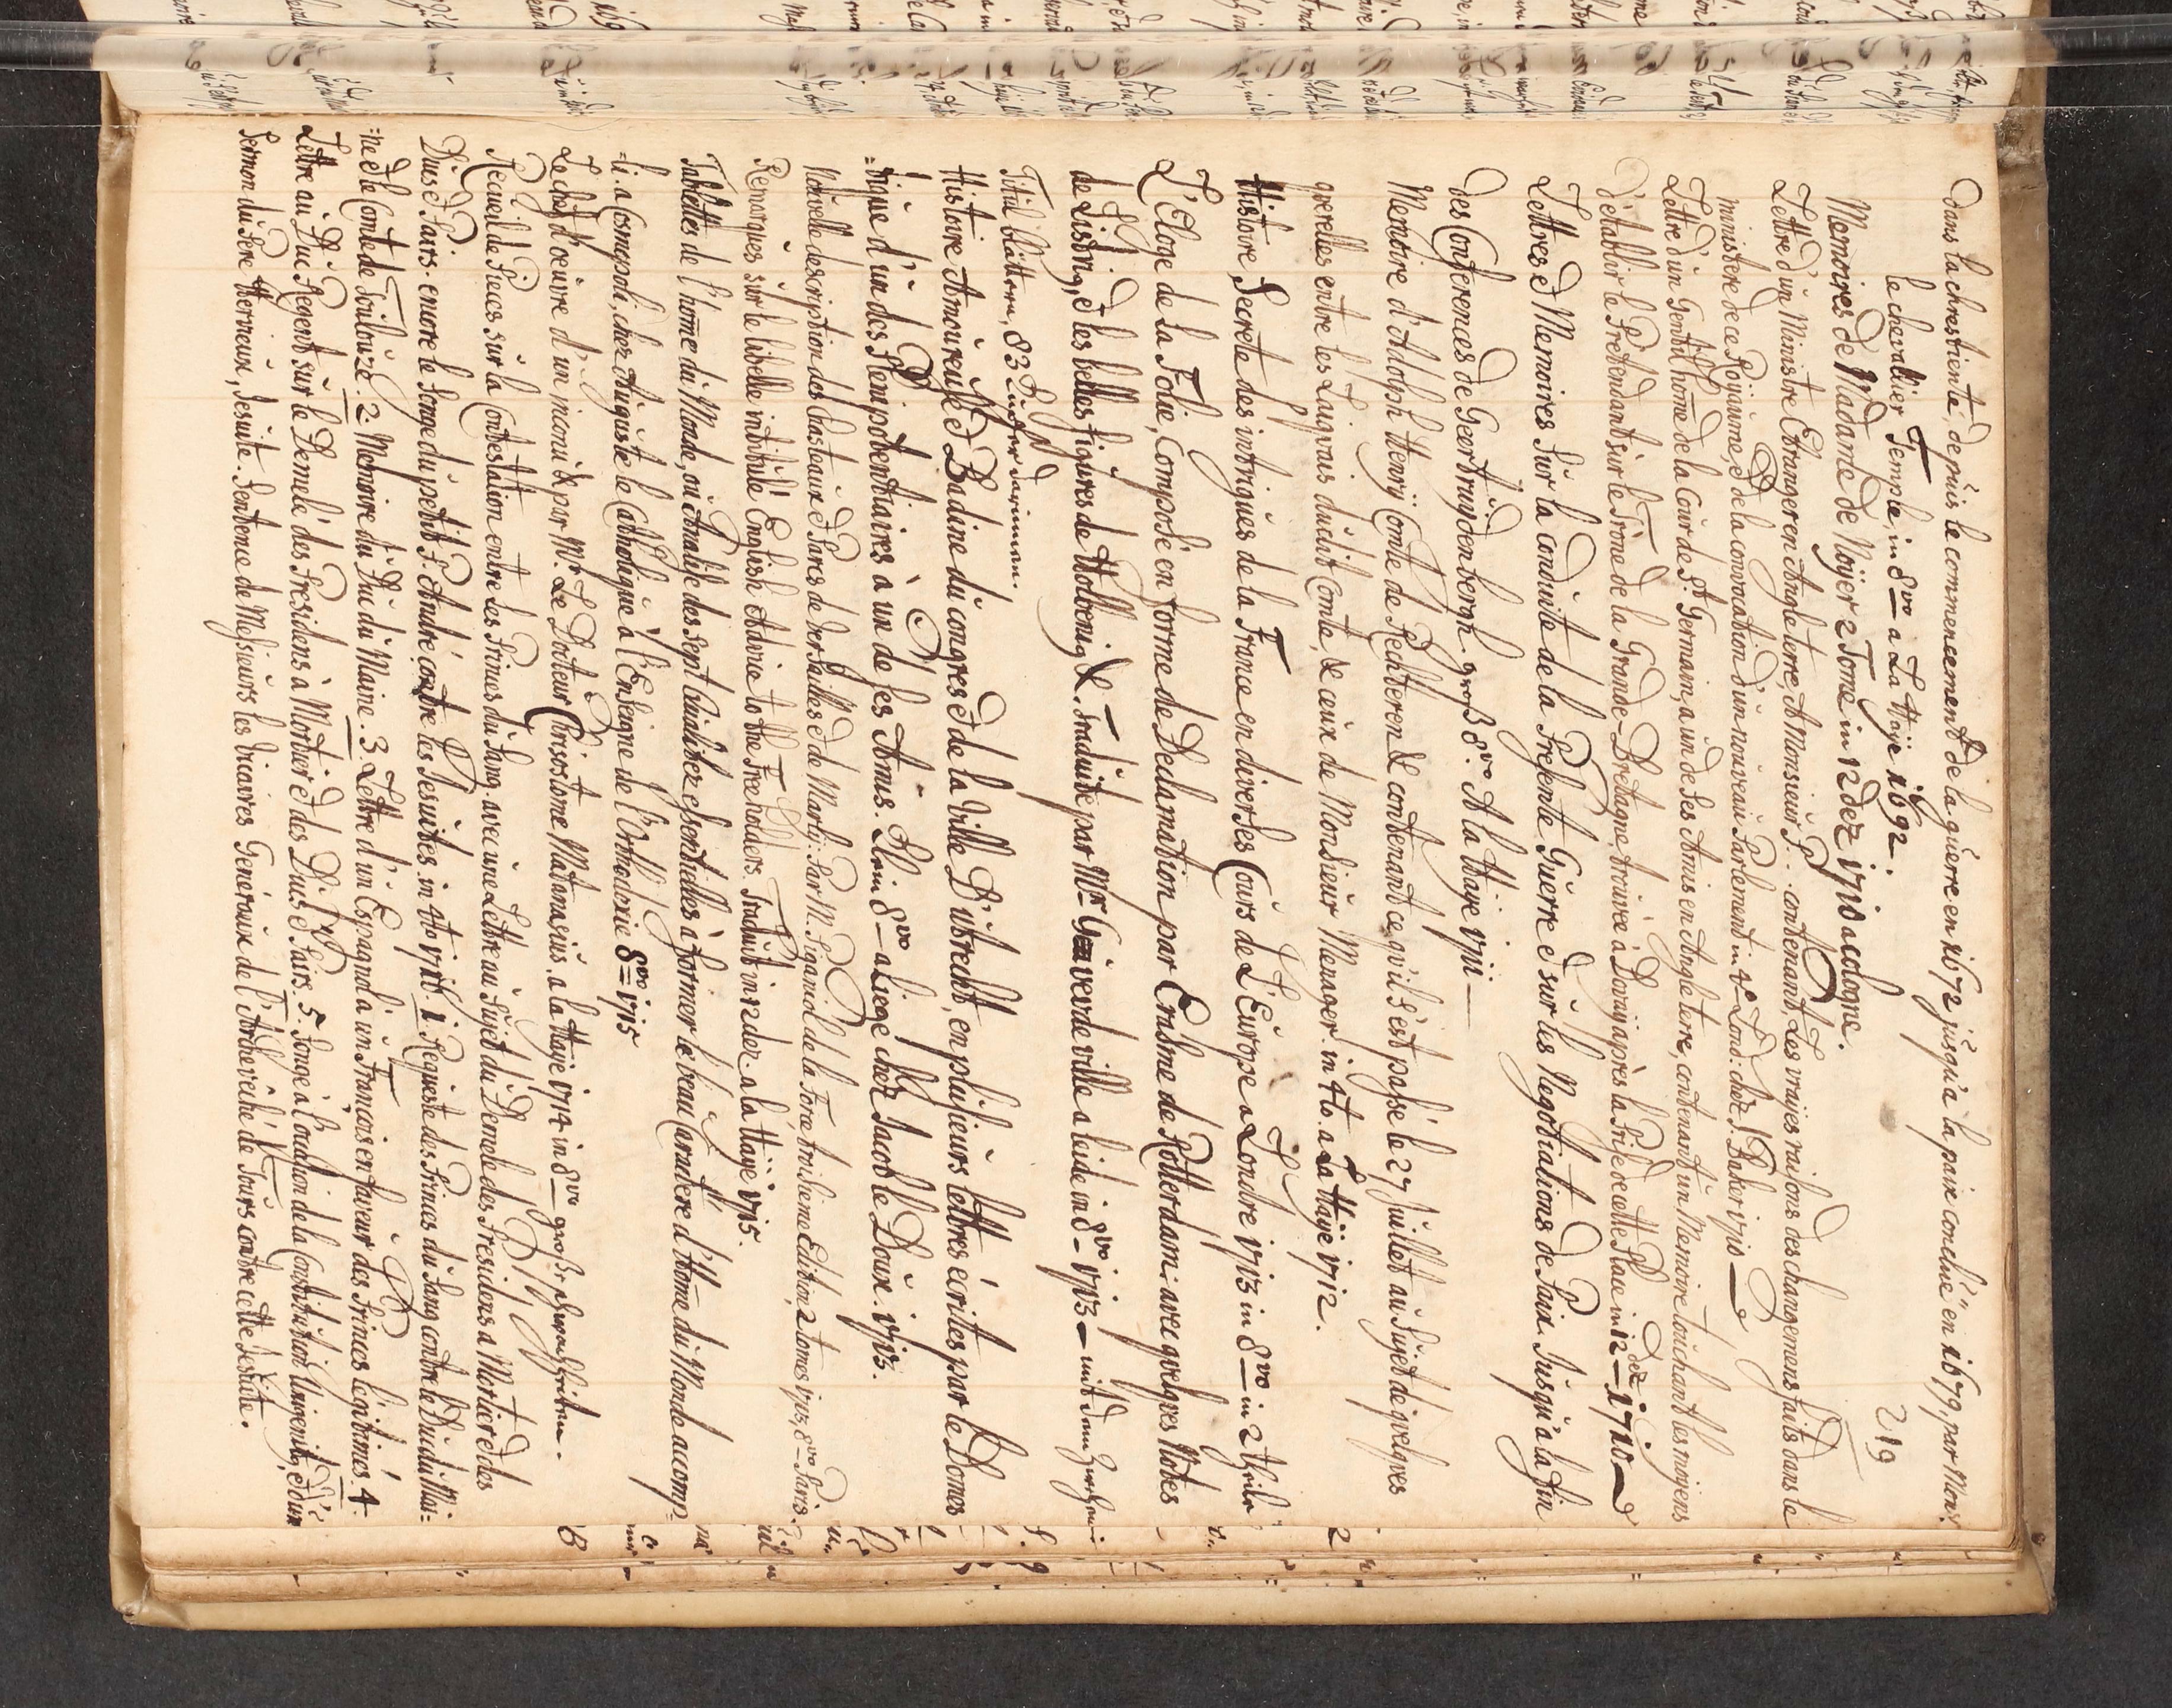 219
dans la chrestienté, depuis le commencement de la guerre en 1672 jusqu'a la paix conclüe en 1679, par Monsr
le chevallier Temple, in 8vo a La Haÿe 1692.
Memoires de Madame de Noÿer 2 Tome in 12dez 1710 a cologne.
Lettre d'un Ministre Etranger en Angleterre, A Monsieur P... contenant, Les vraÿes raisons des changemens faits dans le
ministere de ce Roÿaume, et de la convocation d'un nouveau Parlement in 4o Lond: chez J. Baker 1710
Lettre d'un Gentil'home de la Cour de St. Germain, a un de ses Amis en Angleterre, contenant un Memoire touchant les moÿens
D'etablir le Pretendant sur le Trône de la Grande-Bretagne, trouvée à Doüaÿ après la Prise de cette Place in 12dez 1710
Lettres et Memoires sur la conduite de la presente Guerre et sur les Negotiations de Paix Jusqu'a la fin
des Conferences de Geertruydenbergh. groß 8vo. A la Haye 1711
Memoire d'Adolph Henry Comte de Rechteren & contenant ce qu'il s'est passé le 27 Juillet au Sujet de quelques
querelles entre les Laquais dudit Comte, & ceux de Monsieur Menager. in 4to. a La Haÿe 1712.
Histoire Secrete des intrigues de la France en diverses Cours de L'Europe a Londre 1713 in 8vo in 2 theile
L'Eloge de La Folie, Composée en forme de Declamation par Erasme de Rotterdam: avec quelques Notes
de Listing, et les belles figures de Holbenig &. traduite par Mr Geuvevde ville a leide in 8vo 1713 mit dem
Titul blättern, 83 darinnen.
Histoire Amoureuse et Badine du congres et de la Ville D'utrecht, en plusieurs lettres écrites par le Domes
=tique d'un des Plenipotentiaires à un de ses Amis. Klein 8vo a Liege chez Jacob le Doux. 1713.
Nouvelle description des chasteaux et Parcs de Versailles et de Marly: Par M. Piganiol de la Force troisieme Edition, 2 tomes 1713, 8vo Paris.
Remarques sur le libelle intitulé English Advice to the Freeholders. Traduit in 12dez. a la Haÿe 1715.
Tablettes de l'home du Monde, ou Analise des sept Qualitez essentielles à former le beau Caractere d'Home du Monde accomp=
=li. a Cosmopoli, chez Auguste le Catholique a l'Enseigne de l'Orthodoxie 8vo 1715
Le chef d'oeuvre d'un inconu & par Mr. Le Docteur Chrisostome Matanasius. a la Haÿe 1714 in 8vo
Recueil de Pieces sur la Contestation entre les Princes du Sang, avec une Lettre au Sujet du Demelé des Presidens a Mortier et des
Ducs et Pairs. encore le Songe du petit P. André contre les Jesuites. in 4to 1716. 1. Requeste des Princes du Sang contre le Duc du Mai=
=ne et le Comte de Toulouze. 2. Memoire du Duc du Maine. 3. Lettre d'un Espagnol a un François en faveur des Princes legitimés. 4.
Lettre au Duc Regent sur le Demelé des Presidens à Mortier et des Ducs et Pairs. 5. Songe à l'occasion de la Constitution Unigenit, et d'un
Sermon du Pere Herneux, Jesuite. Sentence de Messieurs les Vicaires Generaux de l'Archeveché de Tours contre cette Jesuite.